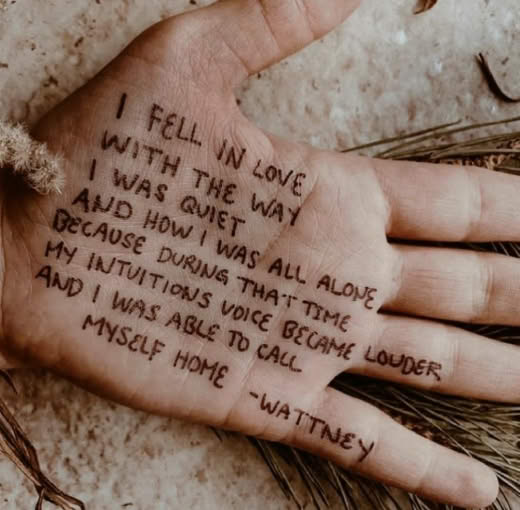 I FELL IN LOVE
WITH THE WAY
I WAS QUIET
AND HOW I WAS ALL ALONE
BECAUSE DURING THAT TIME
MY INTUITIONS VOICE BECAME LOUDER
AND I WAS ABLE TO CALL
MYSELF HOME
-WATTNEY